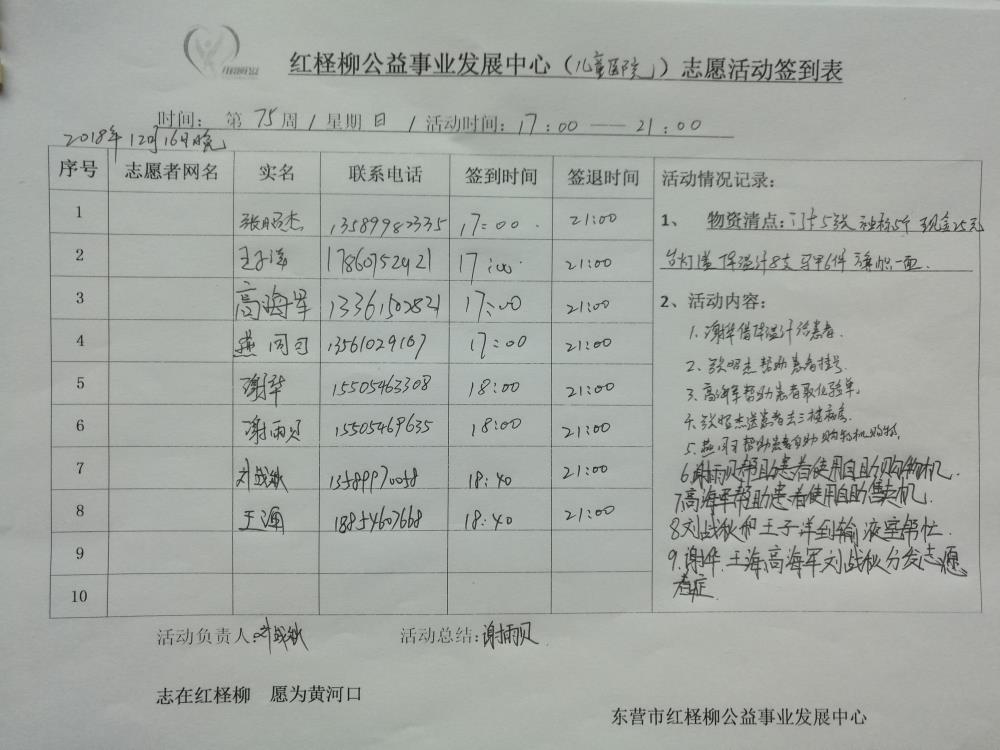 红柽柳公益事业发展中心（儿童医院）志愿活动签到表
时间： 第 75 周 / 星期 日 / 活动时间：17：00 —— 21：00
2018年12月16日晚
序号 志愿者网名 实名 联系电话 签到时间 签退时间 活动情况记录：
1 张昭杰 13589982335 17：00 21:00
2 王子洋 17860752921 17：00 21:00
3 高海军 13361502821 17：00 21:00
4 燕同司 13561029167 17：00 21:00
5 谢华 15505463308 18:00 21:00
6 谢雨贝 15505469635 18:00 21:00
7 刘战秋 13589970058 18:40 21:00
8 王海 18854607668 18:40 21:00
9
10
1、 物资清点： 5张 5个 现金25元
体温计8支 马甲6件 旗帜一面.
2、活动内容：
1. 谢华借体温计给患者.
2. 张昭杰帮助患者挂号.
3. 高海军帮助患者取化验单.
4. 张昭杰送患者去三楼病房.
5. 燕同司帮助患者自助购物机购物.
6.谢雨贝帮助患者使用自助购物机.
7.高海军帮助患者使用自助售卖机.
8.刘战秋和王子洋到输液室帮忙.
9.谢华.王海.高海军刘战秋分发志愿
者证.
活动负责人:刘战秋 活动总结:谢雨贝
志在红柽柳 愿为黄河口
东营市红柽柳公益事业发展中心